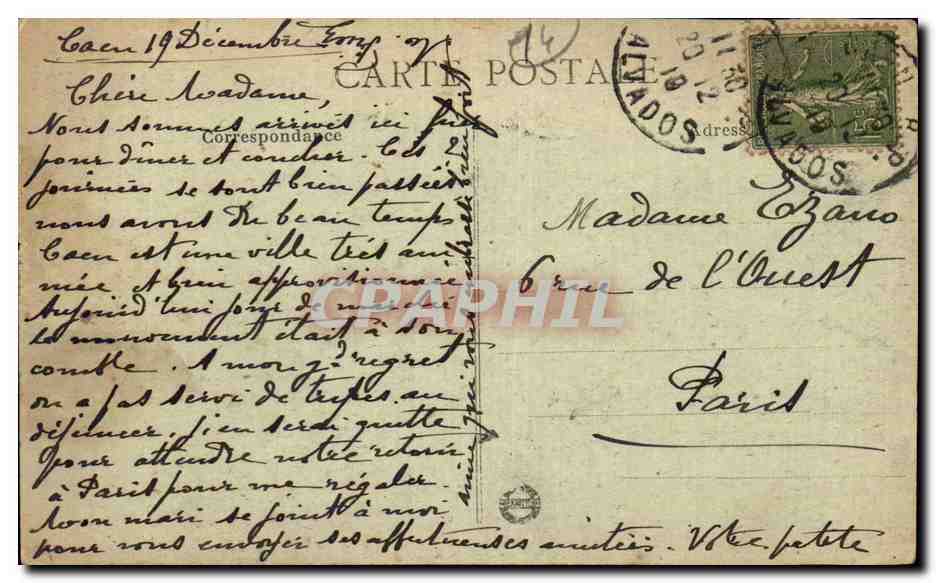 Caen 19 Décembre
14
CARTE POSTALE
Correspondance
Adresse
ALVADOS
11 30
20 12
19
CALVADOS
15
Chère Madame,
Nous sommes arrivés ici
pour dîner et coucher. Ces
journées se sont bien passées
nous avons du beau temps
Caen est une ville très ani
mée et bien approvisionnée
Aujourd'hui jour de marché
le mouvement était à son
comble. A mon gd regret
on a pas servi de tripes au
déjeuner. J'en serai quitte
pour attendre notre retour
à Paris pour me régaler.
Mon mari se joint à moi
pour vous envoyer ses affectueuses amitiés. Votre petite
amie qui vous embrasse bien fort
Madame Ezano
6 rue de l'Ouest
Paris
CPAPHIL